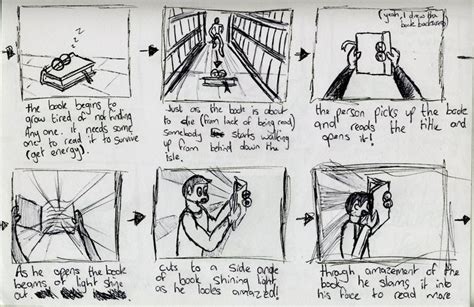 z
z
(yeah, I drew the
book backwards)
the book begins to
grow tired of not finding
Any one. it needs some
one to read it to survive
(get energy).
Just as the book is about
to die (from lack of being read)
somebody starts walking
up from behind down the
isle.
the person picks up the book
and reads the title and
opens it!
As he opens the book
beams of light shine
out.
cuts to a side angle
of book shining light
as he looks amazed!
through amazement of the
book he slams, it into
his face to read more